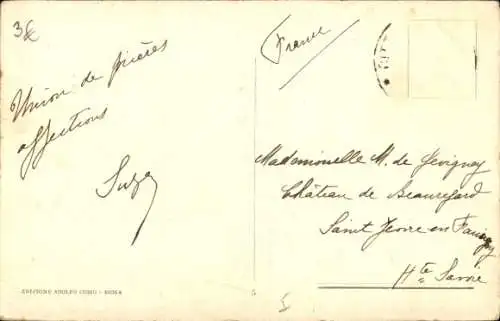 3€
France
Union de prières
affections
Suze
Mademoiselle M. de Gevigney
Château de Beauregard
Saint Jeoire en Faucigny
Hte Savoie
EDIZIONE ADOLFO COMO - ROMA
5